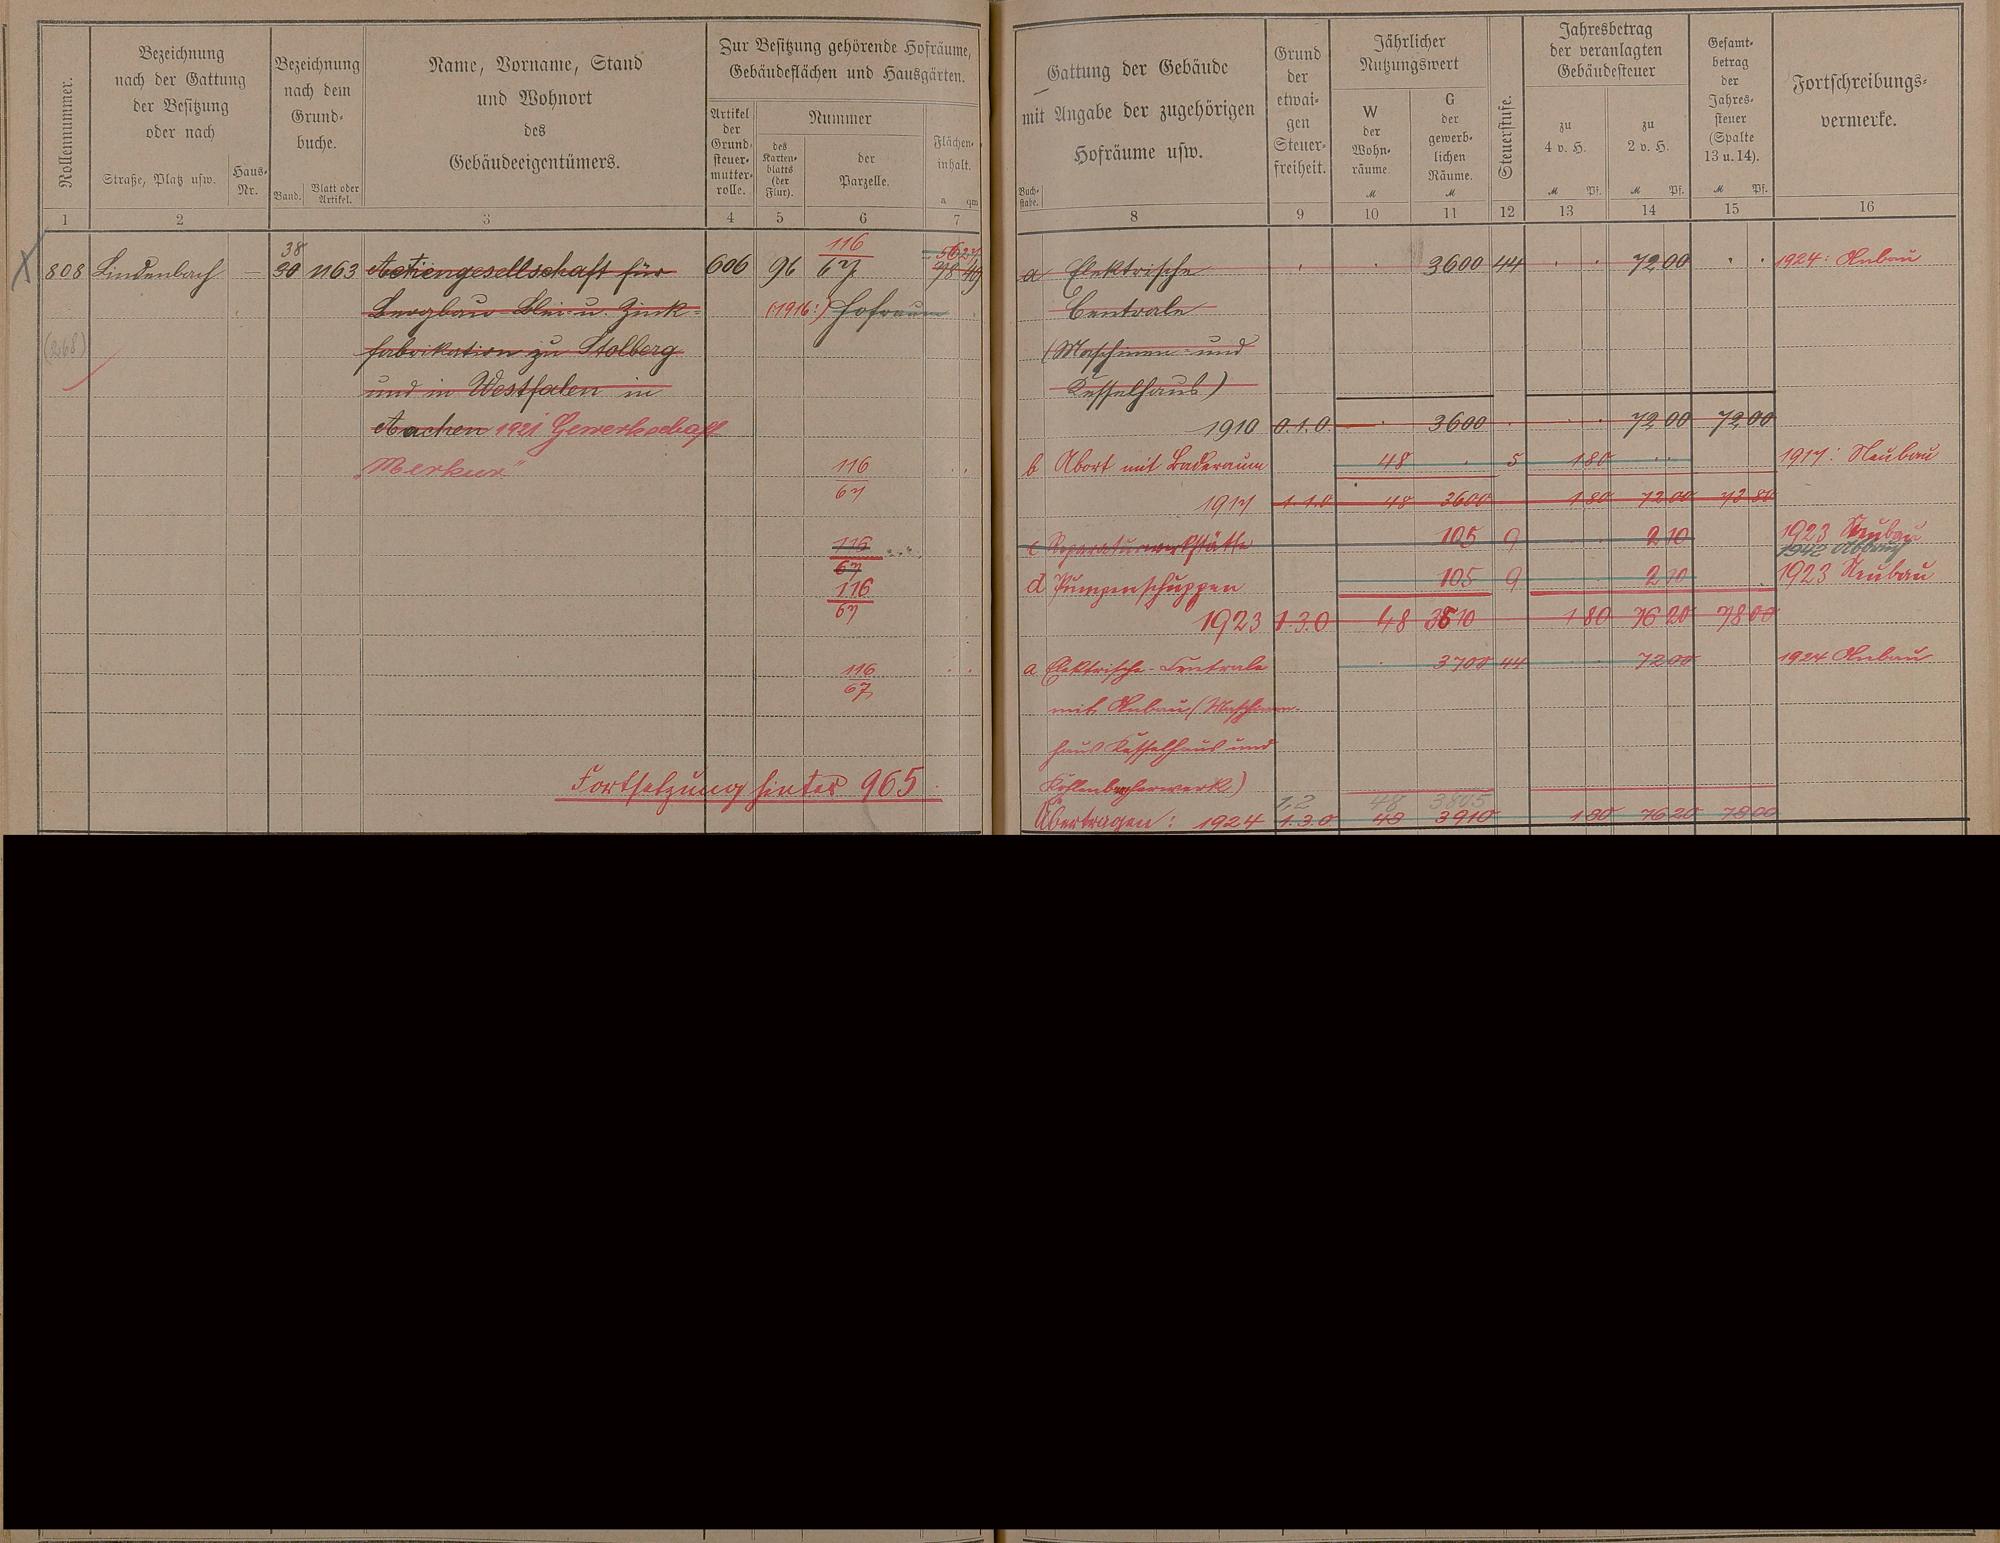 Rollennummer.
Bezeichnung
nach der Gattung
der Besitzung
oder nach
Straße, Platz usw.
Haus-
Nr.
Bezeichnung
nach dem
Grund-
buche.
Band.
Blatt oder
Artikel.
Name, Vorname, Stand
und Wohnort
des
Gebäudeeigentümers.
Zur Besitzung gehörende Hofräume,
Gebäudeflächen und Hausgärten.
Artikel
der
Grund-
steuer-
mutter-
rolle.
Nummer
des
Karten-
blatts
(der
Flur).
der
Parzelle.
Flächen-
inhalt.
a qm
1 2 3 4 5 6 7
38 116 56 27
808 Lindenbach — 30 1163 Actiengesellschaft für 606 96 67 78 49
Bergbau Blei- u. Zink- (1916:) Hofraum
(268) fabrikation zu Stolberg
und in Westfalen in
Aachen 1921 Gewerkschaft
„Merkur"
116
67
116
67
116
67
116
67
Fortsetzung hinter 965.
Gattung der Gebäude
mit Angabe der zugehörigen
Hofräume usw.
Buch-
stabe.
Grund
der
etwai-
gen
Steuer-
freiheit.
Jährlicher
Nutzungswert
W
der
Wohn-
räume.
M
G
der
gewerb-
lichen
Räume.
M
Steuerstufe.
Jahresbetrag
der veranlagten
Gebäudesteuer
zu
4 v. H.
M Pf.
zu
2 v. H.
M Pf.
Gesamt-
betrag
der
Jahres-
steuer
(Spalte
13 u. 14).
M Pf.
Fortschreibungs-
vermerke.
8 9 10 11 12 13 14 15 16
a Elektrische 3600 44 72 00 1924: Anbau
Centrale
(Maschinen- und
Kesselhaus)
1910 0.1.0 3600 72 00 72 00
b Abort mit Baderaum 48 5 1 80 1917: Neubau
1917 1.1.0 48 3600 1 80 72 00 73 80
c Reparaturwerkstätte 105 9 2 10 1923 Neubau
1942 Abbruch
d Pumpenschuppen 105 9 2 10 1923 Neubau
1923 1.3.0 48 3810 1 80 76 20 78 00
a Elektrische-Centrale 3700 44 72 00 1924 Anbau
mit Anbau (Maschinen-
haus Kesselhaus und
Kohlenbecherwerk)
1,2 48 3805
Übertragen: 1924 1.3.0 48 3910 1 80 76 20 78 00